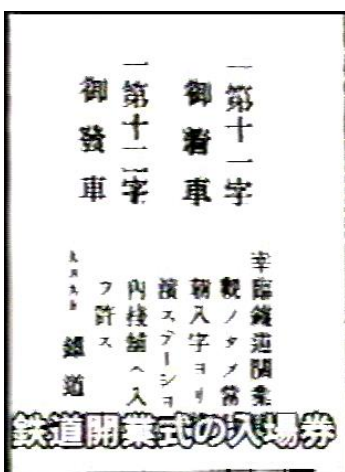 一第十一字
御着車
一第十二字
御發車
幸臨鐵道開業
觀ノタメ當
朝入字ヨリ
濱ステーショ
内棧舗ヘ入
ヲ許ス
鐵道
鉄道開業式の入場券